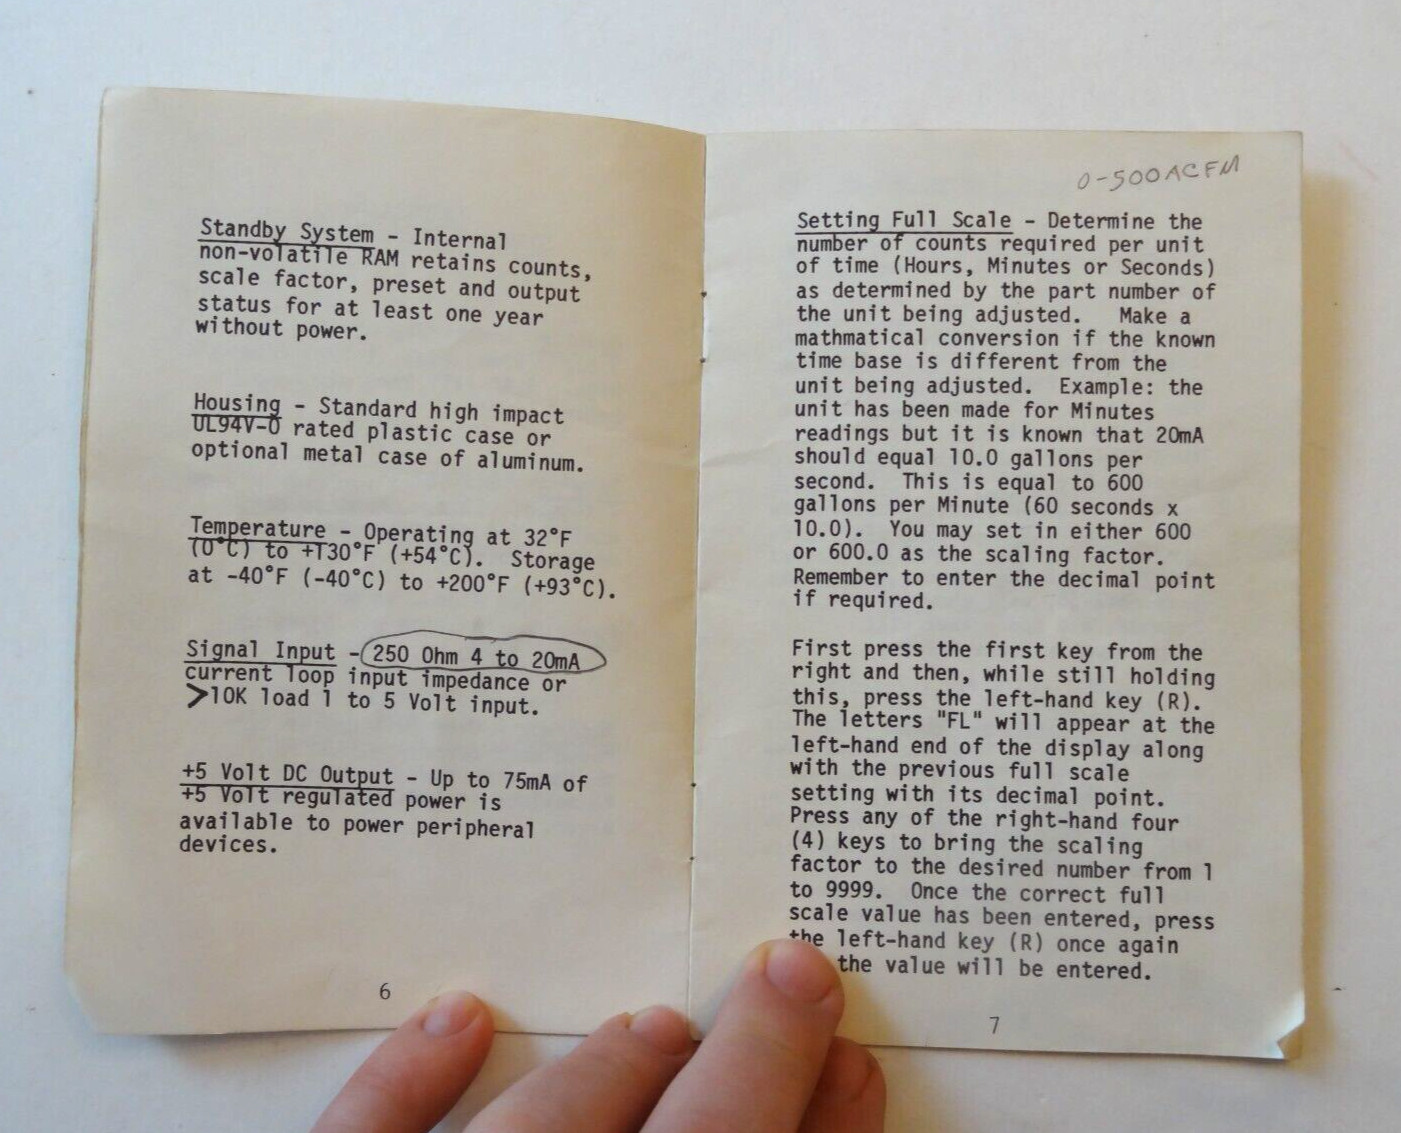 Standby System - Internal
non-volatile RAM retains counts,
scale factor, preset and output
status for at least one year
without power.
Housing - Standard high impact
UL94V-0 rated plastic case or
optional metal case of aluminum.
Temperature - Operating at 32°F
(0°C) to +130°F (+54°C). Storage
at -40°F (-40°C) to +200°F (+93°C).
Signal Input - 250 Ohm 4 to 20mA
current loop input impedance or
>10K load 1 to 5 Volt input.
+5 Volt DC Output - Up to 75mA of
+5 Volt regulated power is
available to power peripheral
devices.
6
0-500ACFM
Setting Full Scale - Determine the
number of counts required per unit
of time (Hours, Minutes or Seconds)
as determined by the part number of
the unit being adjusted. Make a
mathmatical conversion if the known
time base is different from the
unit being adjusted. Example: the
unit has been made for Minutes
readings but it is known that 20mA
should equal 10.0 gallons per
second. This is equal to 600
gallons per Minute (60 seconds x
10.0). You may set in either 600
or 600.0 as the scaling factor.
Remember to enter the decimal point
if required.
First press the first key from the
right and then, while still holding
this, press the left-hand key (R).
The letters "FL" will appear at the
left-hand end of the display along
with the previous full scale
setting with its decimal point.
Press any of the right-hand four
(4) keys to bring the scaling
factor to the desired number from 1
to 9999. Once the correct full
scale value has been entered, press
the left-hand key (R) once again
the value will be entered.
7